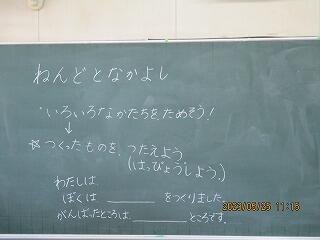 ねんどとなかよし
・いろいろなかたちを、ためそう!
↓
☆つくったものを、つたえよう
(はっぴょうしよう。)
わたしは、
ぼくは ______ をつくりました。
がんばったところは、______ところです。
2023/05/25 11:15